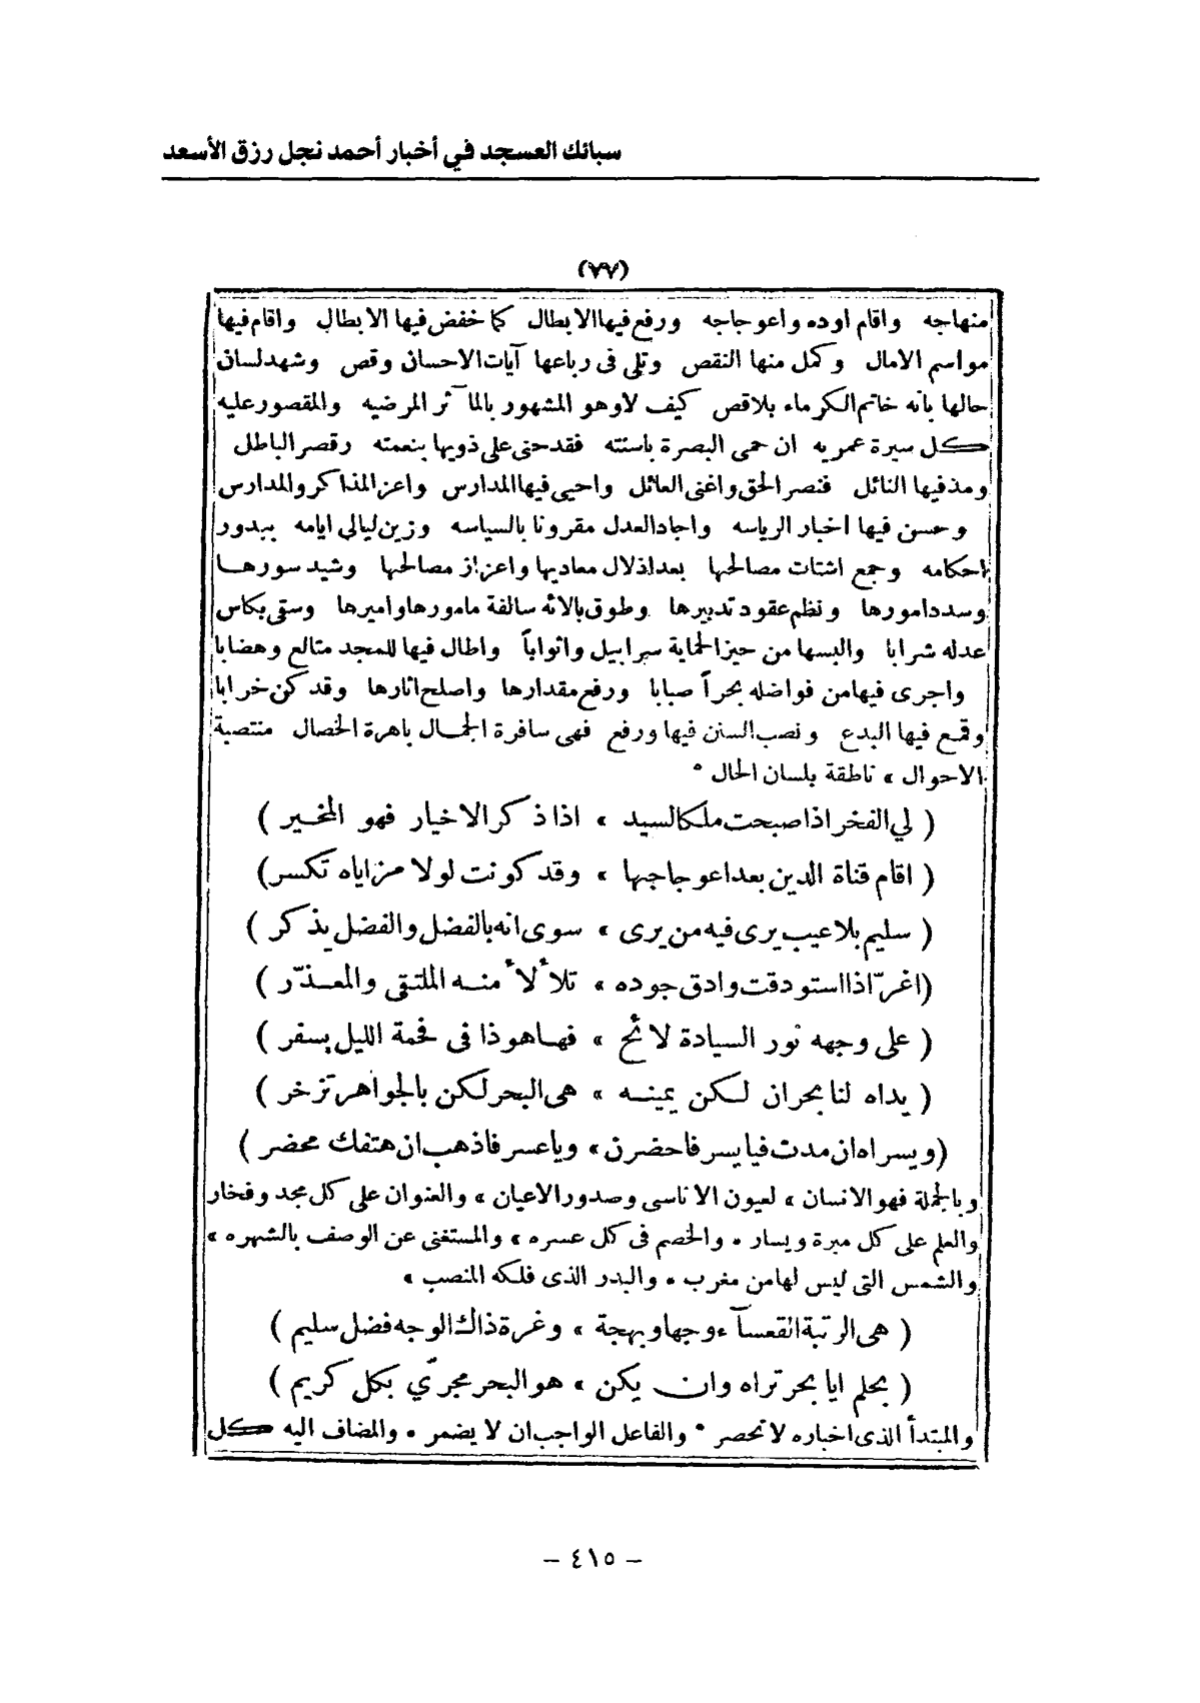 سبائك العسجد في أخبار أحمد نجل رزق الأسعد
(٧٧)
منهاجه واقام اوده واعوجاجه ورفع فيها الابطال كما خفض فيها الابطال واقام فيها
مواسم الامال وكمل منها النقص وتلى فى رباعها آيات الاحسان وقص وشهد لسان
حالها بانه خاتم الكرماء بلاقص كيف لا وهو المشهور بالمآثر المرضيه والمقصور عليه
كل سيرة عمريه ان حمى البصرة باسنته فقد حنى على ذويها بنعمته وقصر الباطل
ومذ فيها النائل فنصر الحق واغنى العائل واحيى فيها المدارس واعز المذاكر والمدارس
وحسن فيها اخبار الرياسه واجاد العدل مقرونا بالسياسه وزين ليالى ايامه ببدور
احكامه وجمع اشتات مصالحها بعد اذلال معاديها واعزاز مصالحها وشيد سورها
وسدد امورها ونظم عقود تدبيرها وطوق بالائه سالفة مامورها واميرها وسقى بكاس
عدله شرابا والبسها من حيز الحماية سرابيل واثواباً واطال فيها للمجد متالع وهضابا
واجرى فيها من فواضله بحراً صبابا ورفع مقدارها واصلح اثارها وقد كن خرابا
وقمع فيها البدع ونصب السنن فيها ورفع فهى سافرة الجمال باهرة الخصال منتصبة
الاحوال » ناطقة بلسان الحال *
( لي الفخر اذا صبحت ملكا لسيد » اذا ذكر الاخيار فهو المخير )
( اقام قناة الدين بعد اعوجاجها » وقد كونت لولا مزاياه تكسر)
( سليم بلا عيب يرى فيه من يرى » سوى انه بالفضل والفضل يذكر )
(اغرّ اذا استودقت وادق جوده » تلألأ منه الملتقى والمعذّر )
( على وجهه نور السيادة لائح » فها هوذا فى فحمة الليل يسفر )
( يداه لنا بحران لكن يمينه » هى البحر لكن بالجواهر تزخر )
(ويسراه ان مدت فيا يسر فاحضرن » ويا عسر فاذهب ان هتفك محضر )
وبالجملة فهو الانسان » لعيون الاناسى وصدور الاعيان » والعنوان على كل مجد وفخار
والعلم على كل مبرة ويسار * والخصم فى كل عسره » والمستغنى عن الوصف بالشهره »
والشمس التى ليس لها من مغرب * والبدر الذى فلكه المنصب »
( هى الرتبة القعسآء وجها وبهجة » وغرة ذاك الوجه فضل سليم )
( بحلم ايا بحر تراه وان يكن » هو البحر مجرّي بكل كريم )
والمبتدأ الذى اخباره لا تحصر * والفاعل الواجب ان لا يضمر * والمضاف اليه كل
– ٤١٥ –